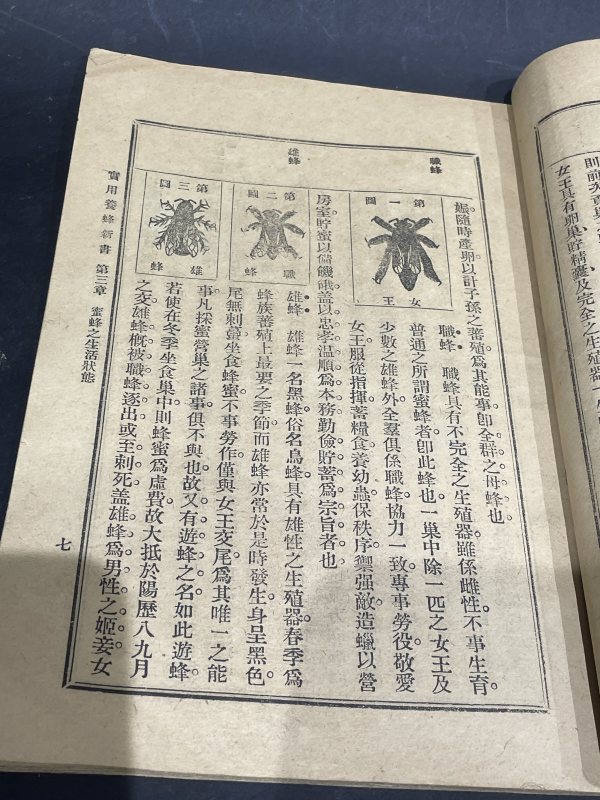 職蜂
雄蜂
娠隨時產卵以計子孫之蕃殖爲其能事卽全群之母蜂也
職蜂　職蜂具有不完全之生殖器雖係雌性不事生育
普通之所謂蜜蜂者卽此蜂也一巢中除一匹之女王及
少數之雄蜂外全羣俱係職蜂協力一致專事勞役敬愛
女王服從指揮蓄糧食養幼蟲保秩序禦强敵造蠟以營
房室貯蜜以備饑餓盖以忠孝温順爲本務勤儉貯蓄爲宗旨者也
雄蜂　雄蜂一名黑蜂俗名烏蜂具有雄性之生殖器春季爲
蜂族蕃殖上最要之季節而雄蜂亦常於是時發生身呈黑色
尾無刺螫坐食蜂蜜不事勞作僅與女王交尾爲其唯一之能
事凡採蜜營巢之諸事俱不與也故又有遊蜂之名如此遊蜂
若使在冬季坐食巢中則蜂蜜爲虛費故大抵於陽歷八九月
之交雄蜂槪被職蜂逐出或至刺死盖雄蜂爲男性之姬妾女
第一圖
女王
第二圖
職蜂
第三圖
雄蜂
實用養蜂新書　第三章　蜜蜂之生活狀態
七
女王具有卵巢貯精囊及完全之生殖器